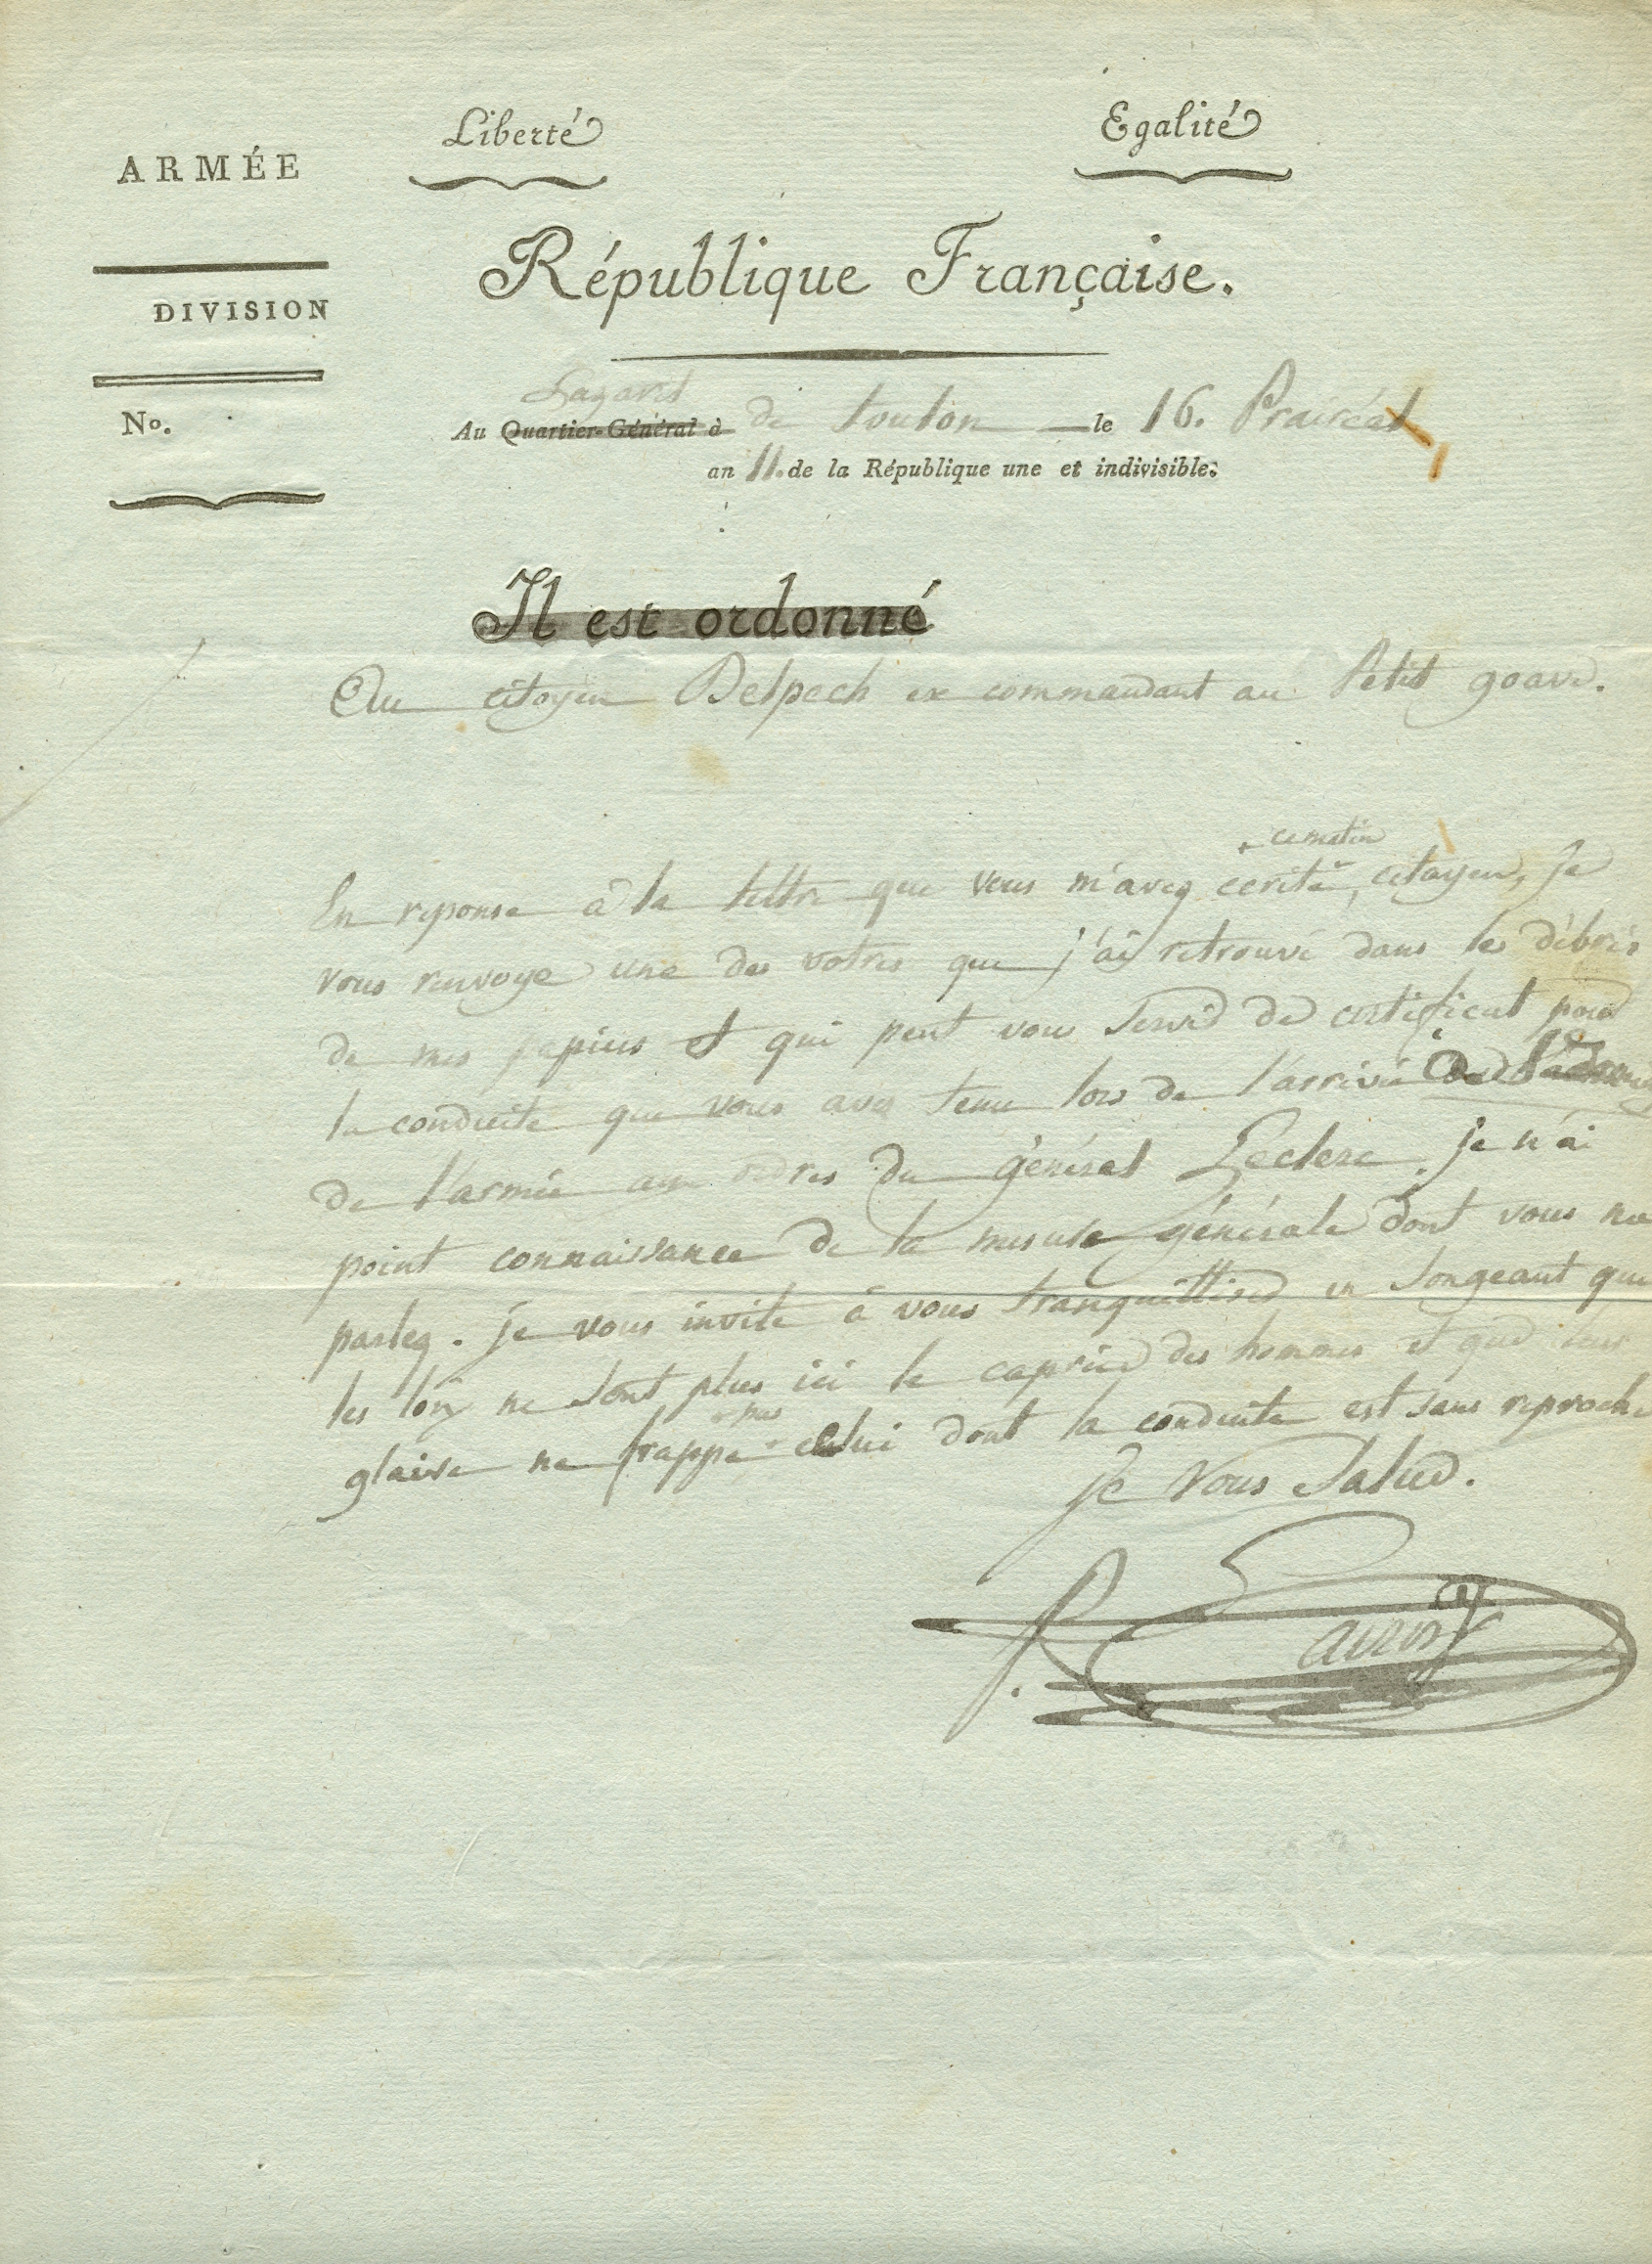 Liberté Egalité
ARMÉE
République Française.
DIVISION
Lazaret
No. Au Quartier-Général à de toulon le 16. Prairéal
an 11. de la République une et indivisible.
Il est ordonné
Au citoyen Delpech ex commandant au Petit goave.
ce matin
En reponse à la lettre que vous m'avez ecrite, citoyen, Je
vous renvoye une des votres que j'ai retrouvé dans les débris
de mes papiers et qui peut vous servir de certificat pour
la conduite que vous avez tenu lors de l'arrivée
de l'armée aux ordres du général Leclerc. je n'ai
point connaissance de la mesure générale dont vous me
parlez. je vous invite à vous tranquilliser en songeant que
les loix ne sont plus ici le caprice des hommes et que leur
pas
glaive ne frappe celui dont la conduite est sans reproche
Je vous Salue.